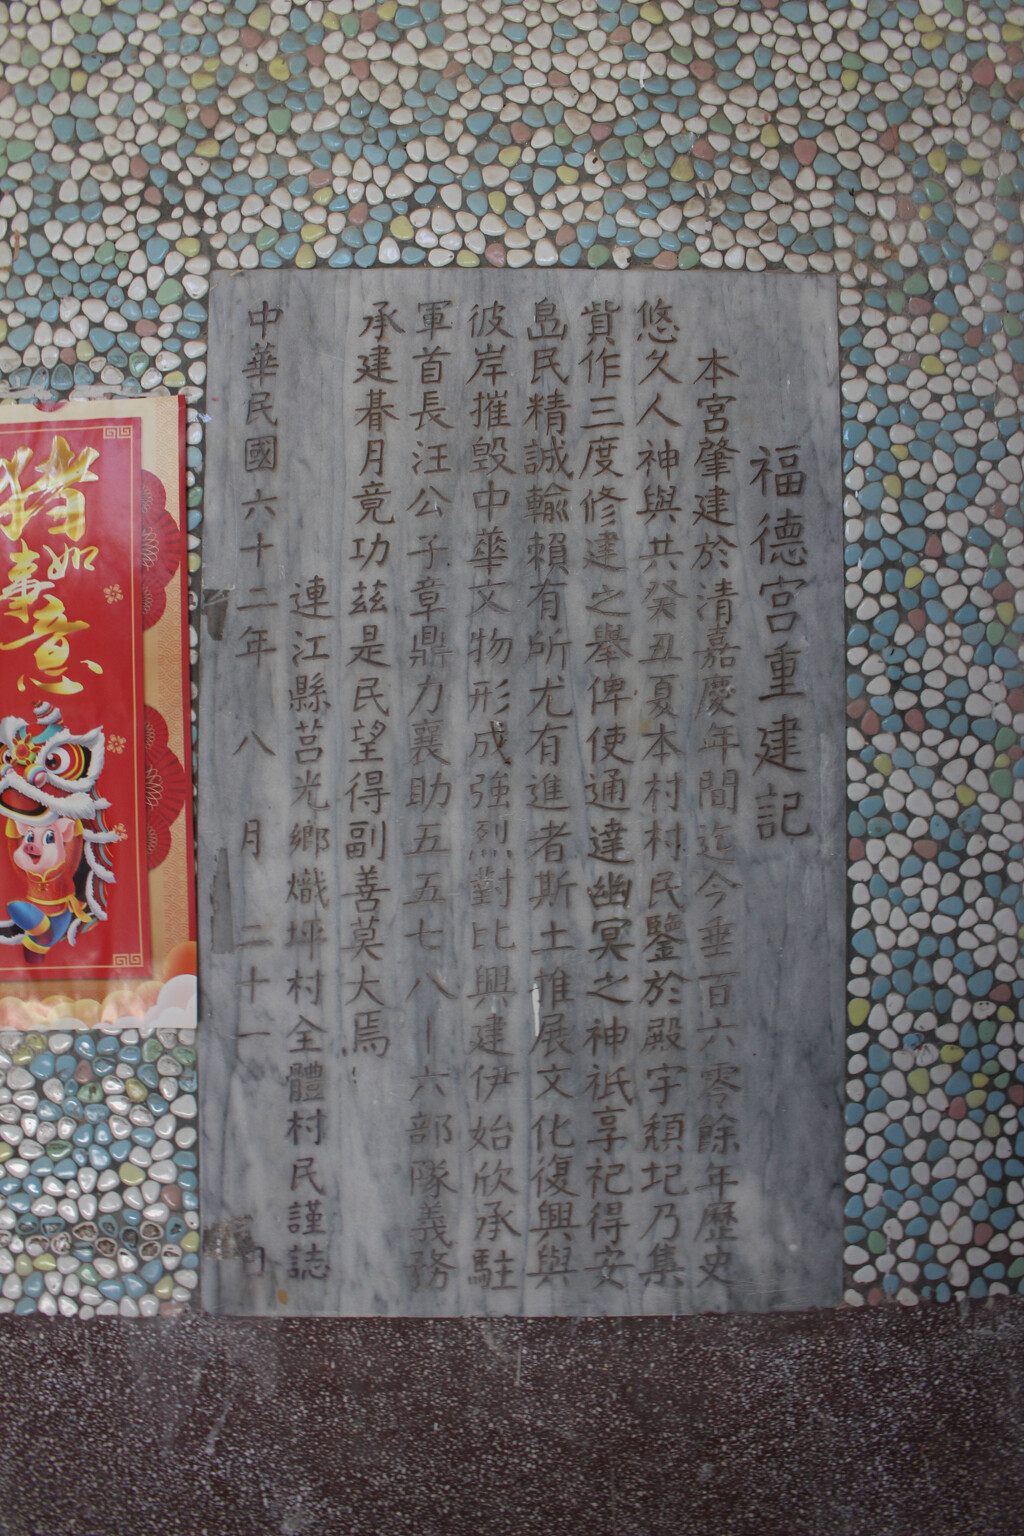 福德宮重建記
本宮肇建於清嘉慶年間迄今垂百六零餘年歷史
悠久人神與共癸丑夏本村村民鑒於殿宇頹圮乃集
貲作三度修建之舉俾使通達幽冥之神祇享祀得安
島民精誠輸賴有所尤有進者斯土推展文化復興與
彼岸摧毀中華文物形成強烈對比興建伊始欣承駐
軍首長汪公子章鼎力襄助五五七八－六部隊義務
承建朞月竟功茲是民望得副善莫大焉
連江縣莒光鄉熾坪村全體村民謹誌
中華民國六十二年八月二十一日
豬
事如
意